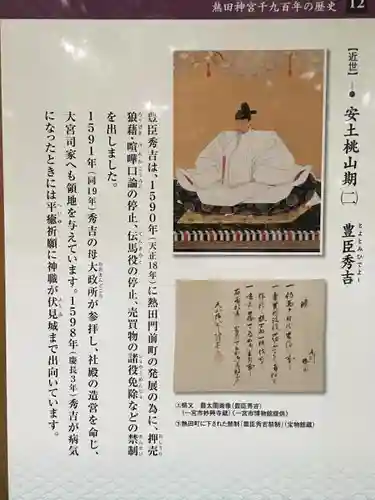 熱田神宮千九百年の歴史 12
【近世】―● 安土桃山期㈡ 豊臣秀吉
とよとみひでよし
豊臣秀吉は、1590年(天正18年)に熱田門前町の発展の為に、押売
狼藉・喧嘩口論の停止、伝馬役の停止、売買物の諸役免除などの禁制
を出しました。
1591年(同19年)秀吉の母大政所が参拝し、社殿の造営を命じ、
大宮司家へも領地を与えています。1598年(慶長3年)秀吉が病気
になったときには平癒祈願に神職が伏見城まで出向いています。
豊太閤画像(豊臣秀吉)
(一宮市妙興寺蔵)(一宮市博物館提供)
熱田町に下された禁制(豊臣秀吉禁制)(宝物館蔵)